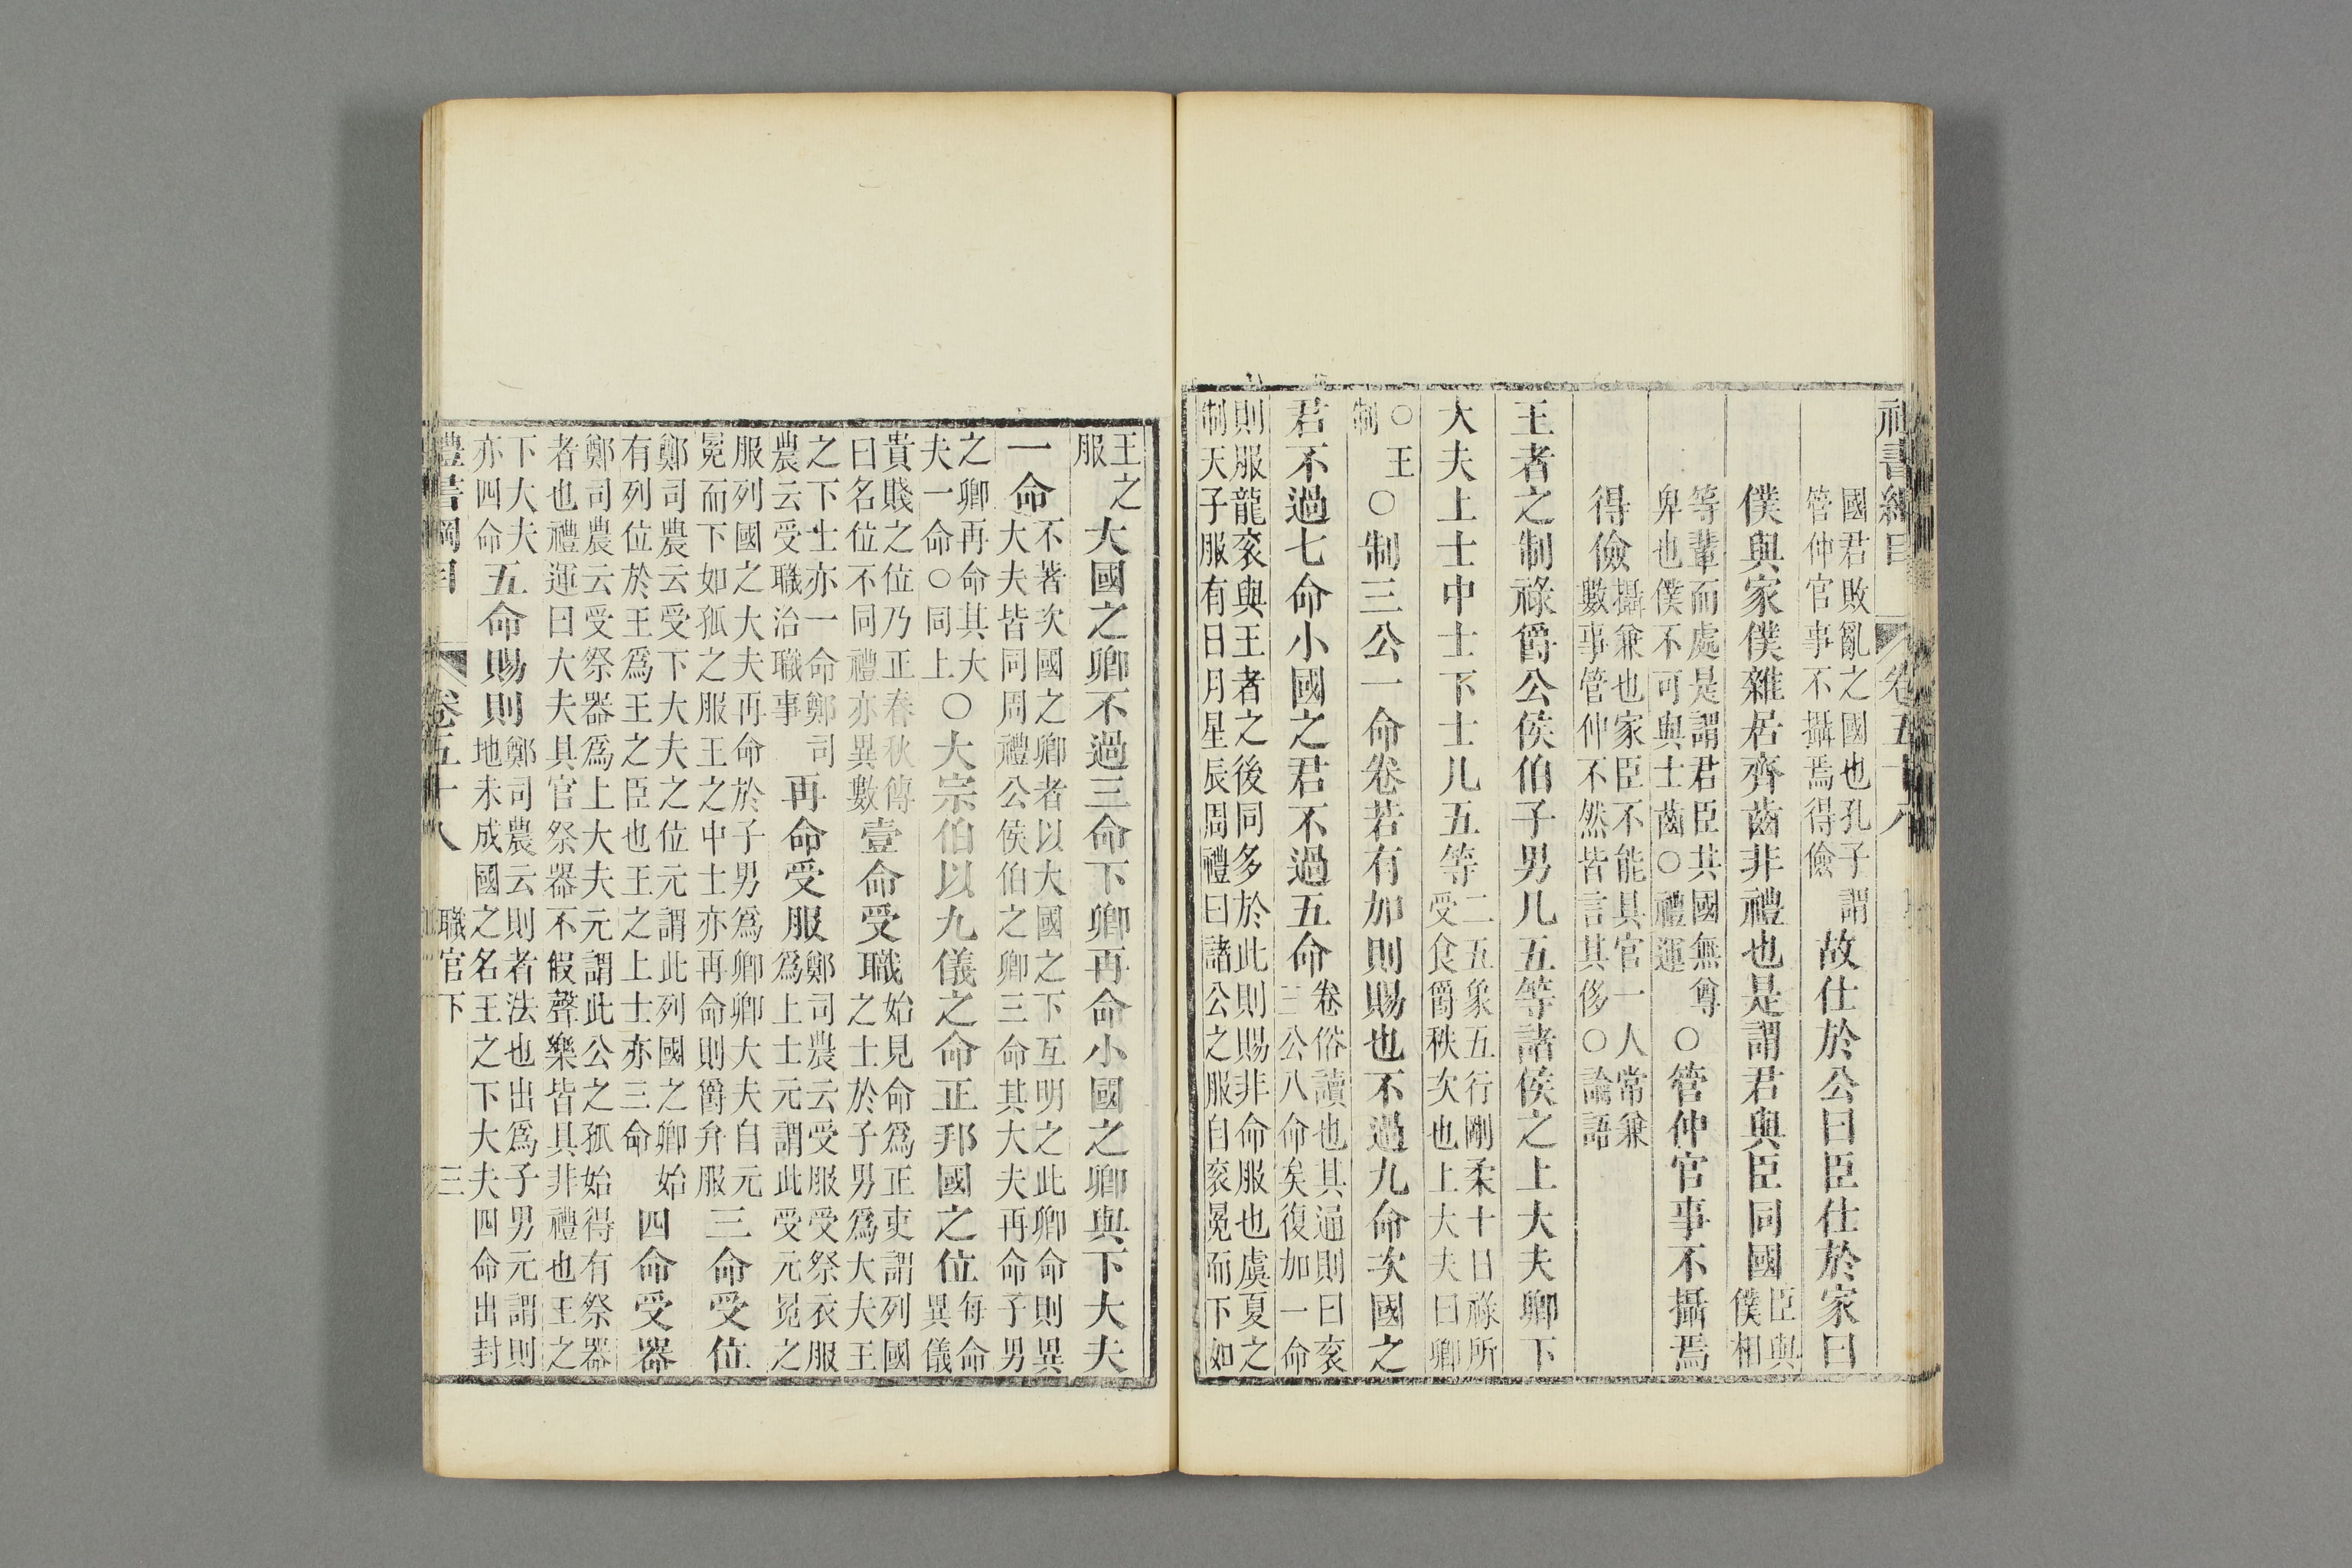 禮書綱目 卷五十八
國君敗亂之國也孔子謂管仲官事不攝焉得儉故仕於公曰臣仕於家曰
僕與家僕雜居齊齒非禮也是謂君與臣同國臣與僕相
等輩而處是謂君臣共國無尊卑也僕不可與士齒○禮運○管仲官事不攝焉
得儉攝兼也家臣不能具官一人常兼數事管仲不然皆言其侈○論語
王者之制祿爵公侯伯子男凡五等諸侯之上大夫卿下
大夫上士中士下士凡五等二五象五行剛柔十日祿所受食爵秩次也上大夫曰卿
○王制○制三公一命卷若有加則賜也不過九命次國之
君不過七命小國之君不過五命卷俗讀也其通則曰衮三公八命矣復加一命
則服龍衮與王者之後同多於此則賜非命服也虞夏之制天子服有日月星辰周禮曰諸公之服自衮冕而下如
王之服大國之卿不過三命下卿再命小國之卿與下大夫
一命不著次國之卿者以大國之下互明之此卿命則異大夫皆同周禮公侯伯之卿三命其大夫再命子男
之卿再命其大夫一命○同上○大宗伯以九儀之命正邦國之位每命異儀
貴賤之位乃正春秋傳曰名位不同禮亦異數壹命受職始見命爲正吏謂列國之士於子男爲大夫王
之下士亦一命鄭司農云受職治職事再命受服鄭司農云受服受祭衣服爲上士元謂此受元冕之
服列國之大夫再命於子男爲卿卿大夫自元冕而下如孤之服王之中士亦再命則爵弁服三命受位
鄭司農云受下大夫之位元謂此列國之卿始有列位於王爲王之臣也王之上士亦三命四命受器
鄭司農云受祭器爲上大夫元謂此公之孤始得有祭器者也禮運曰大夫具官祭器不假聲樂皆具非禮也王之
下大夫亦四命五命賜則鄭司農云則者法也出爲子男元謂則地未成國之名王之下大夫四命出封
禮書綱目 卷五十八 職官下 三